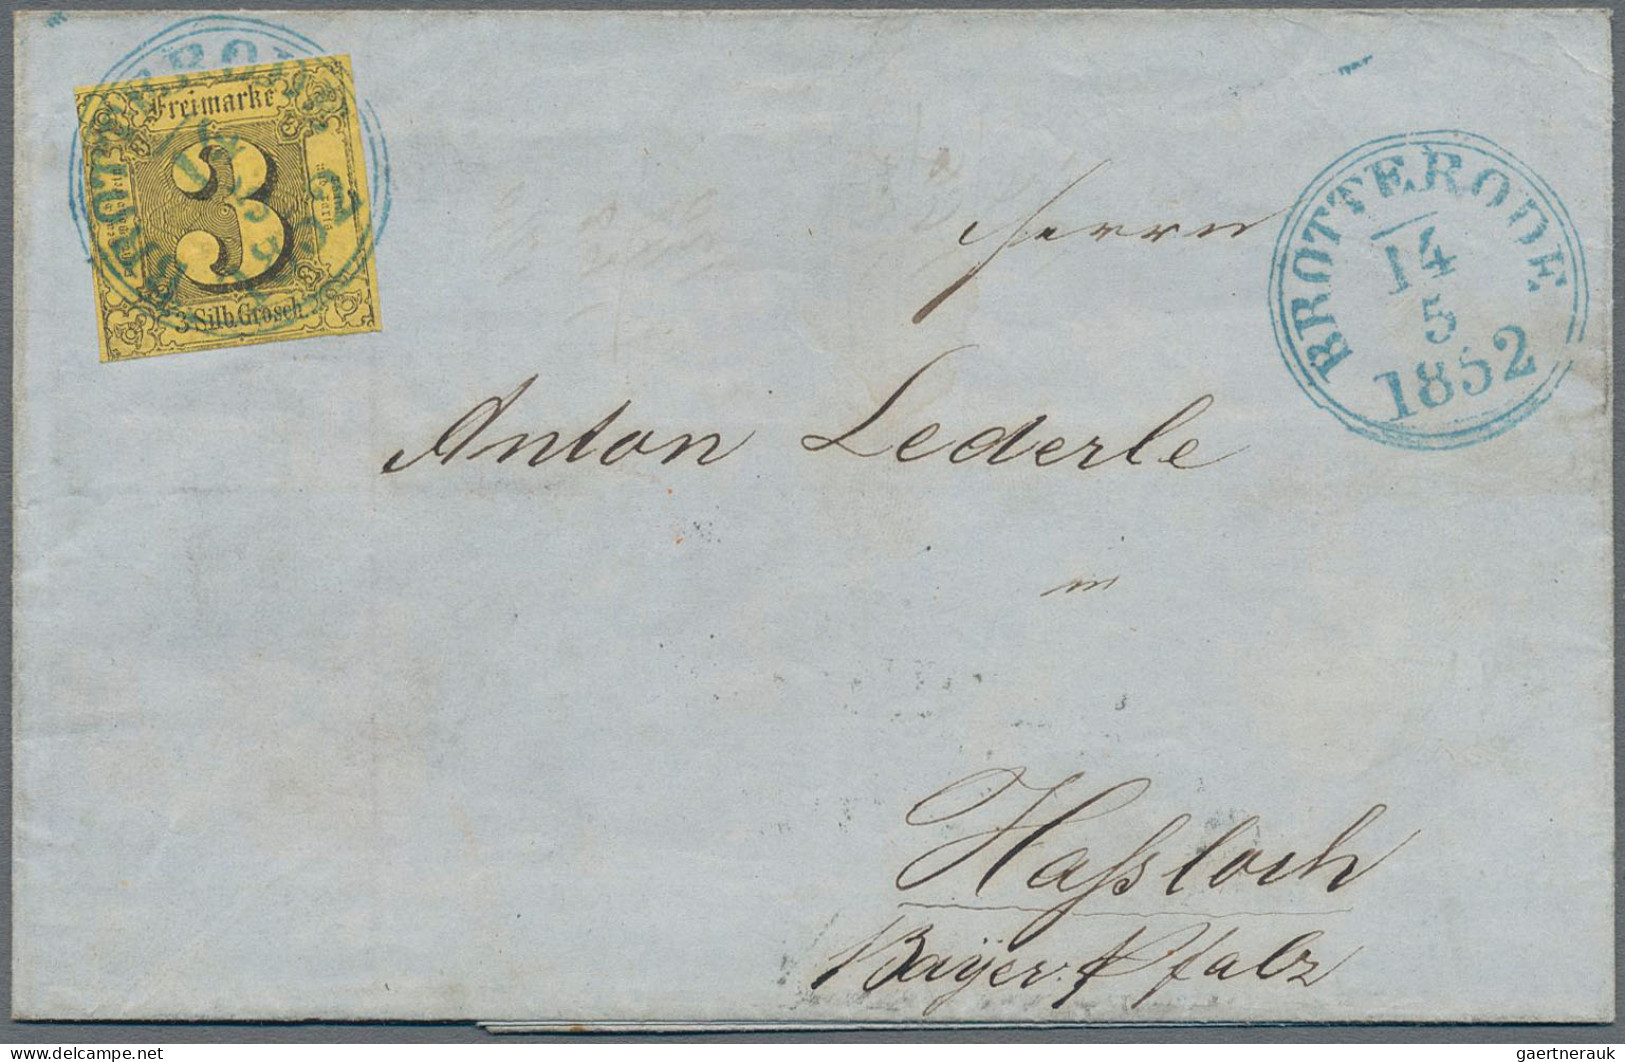 Freimarke
3
3 Silb. Grosch.
BROTTERODE
14
5
1852
Herrn
Anton Lederle
in
Haſsloch
Bayer. Pfalz
gaertnerauk